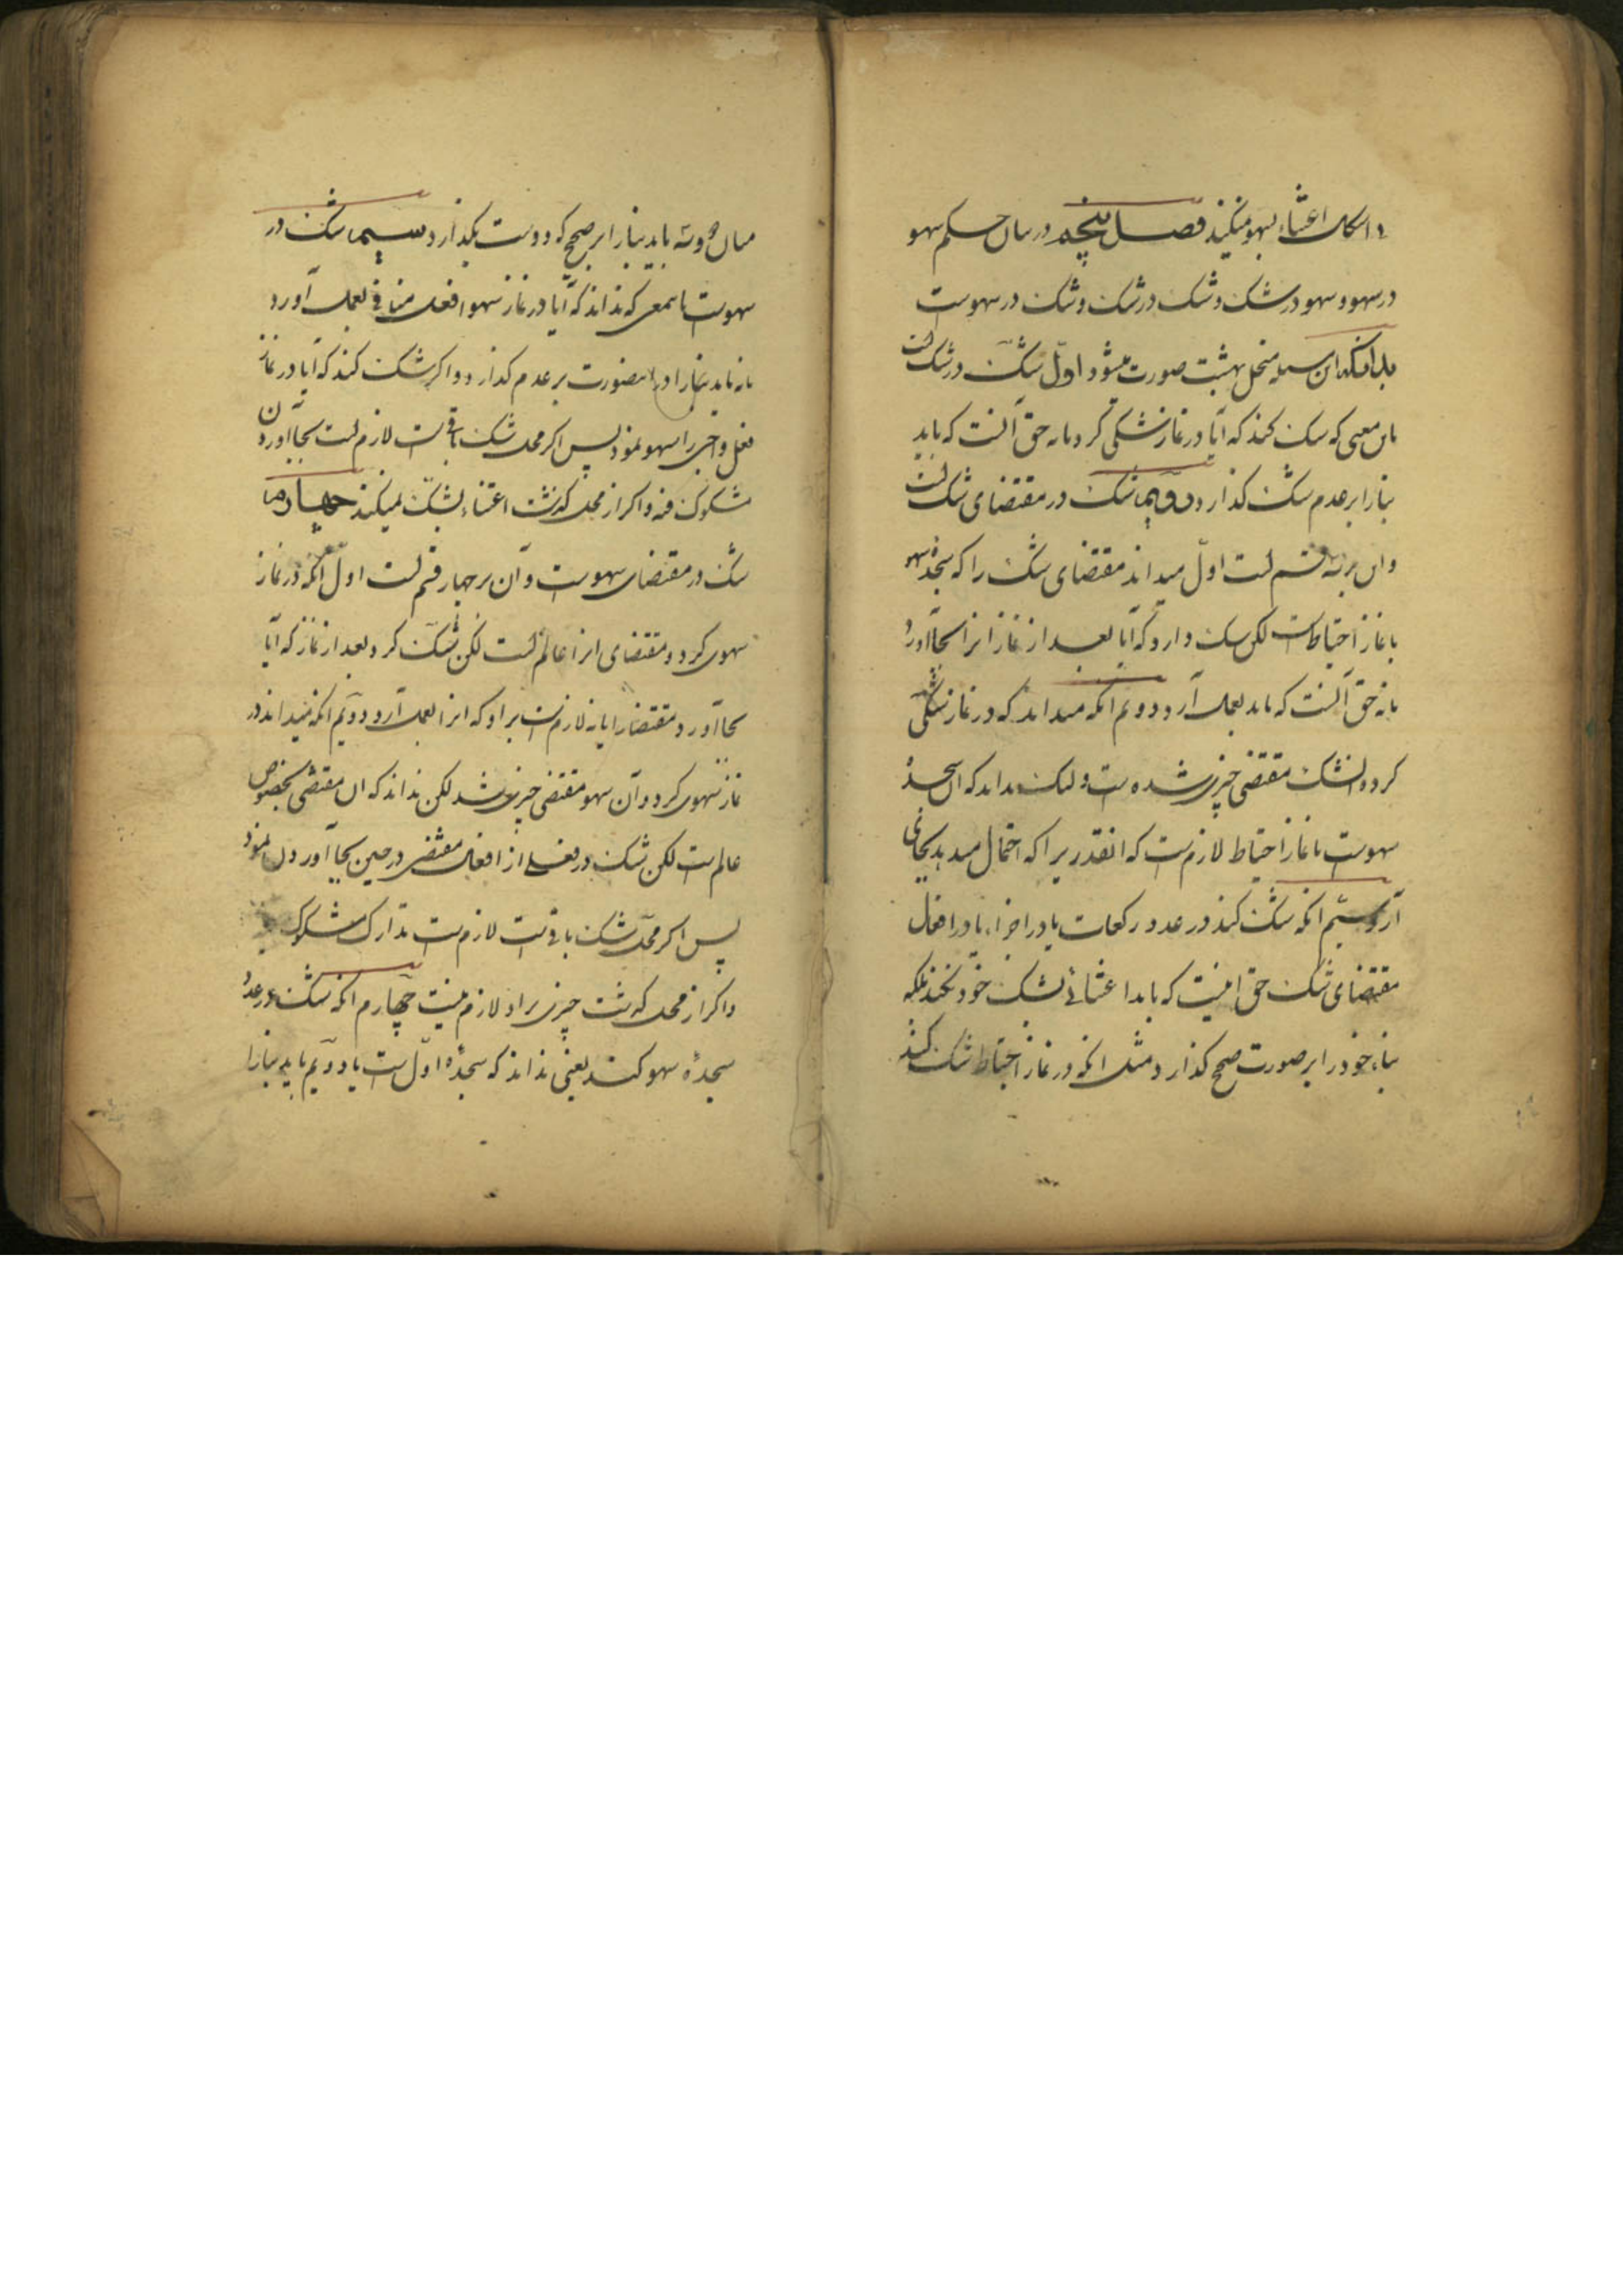 و امکان اعتناء بسهو میکنید فصل پنجم در بیان حکم سهو
در سهو و سهو در شک و شک در شک و شک در سهوست
بدانکه این مسئله منحل بهشت صورت میشود اول شک در شک است
باین معنی که شک کند که آیا در نماز شکی کرد یا نه حق آنست که باید
بنا را بر عدم شک گذارد دویم شک در مقتضای شک است
و این بر سه قسم است اول میداند مقتضای شک را که سجده سهو
یا نماز احتیاطست لکن شک دارد که آیا بعد از نماز انرا بجا آورد
یا نه حق آنست که باید بعمل آرد و دویم انکه میداند که در نماز شکی
کرده و انشک مقتضی چیزی شده است ولیک نداند که ان سجدهٔ
سهوست یا نماز احتیاط لازمست که انقدریرا که احتمال میدهد بجای
آرد سیم انکه شک کند در عدد رکعات یا در اجزاء یا در افعال
مقتضای شک حق اینست که باید اعتنائی بشک خود نکند بلکه
بناء خود را بر صورت صحیح گذارد مثل انکه در نماز احتیاط شک کند
میان دو و سه باید بنا را بر صحیح که دو است بگذارد سیم شک در
سهوست باینمعنی که نداند که آیا در نماز سهوا فعل منافی بعمل آورد
یا نه باید بنا را در اینصورت بر عدم گذارد و اگر شک کند که آیا در نماز
فعل واجبی را سهو نمود پس اگر محل شک باقیست لازم است بجا آوردن
مشکوک فیه و اگر از محل گذشت اعتناء بشک نمیکند چهارم
شک در مقتضای سهوست و آن بر چهار قسم است اول انکه در نماز
سهوی کرد و مقتضای انرا عالم است لکن شک کرد بعد از نماز که آیا
بجا آورد مقتضا را یا نه لازمست بر او که انرا بعمل آرد و دویم انکه میداند در
نماز سهوی کرد و آن سهو مقتضی چیزی شد لکن نداند که ان مقتضی بخصوص
عالم است لکن شک در فعلی از افعال مقتضی در حین بجا آوردن نمود
پس اگر محل شک باقیست لازمست تدارک مشکوک
و اگر از محل گذشت چیزی بر او لازم نیست چهارم انکه شک در عدد
سجدهٔ سهو کند یعنی نداند که سجدهٔ اول است یا دویم باید بنا را